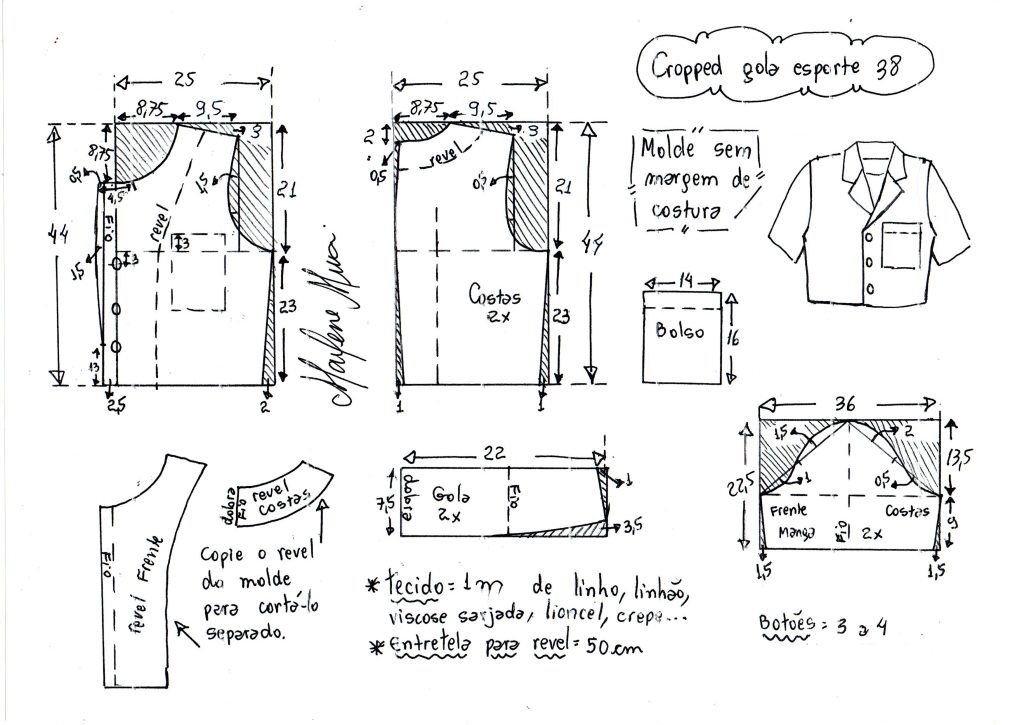 Cropped gola esporte 38
25
8,75
9,5
3
8,75
0,5
4,5
1,5
Fio
revel
44
21
3
3
1,5
23
13
2,5
2
Marlene Mukai
25
8,75
9,5
3
2
0,5
revel
0,5
21
44
Costas
2x
23
1
1
Molde sem
margem de
costura
14
Bolso
16
36
1,5
2
13,5
22,5
1
0,5
Frente
Costas
Manga
Fio
2x
9
1,5
1,5
22
7,5
dobra
Gola
2x
Fio
1
3,5
Fio
revel Frente
dobra
Fio
revel
costas
Copie o revel
do molde
para cortá-lo
separado.
* tecido = 1m de linho, linhão,
viscose sarjada, lioncel, crepe...
* Entretela para revel = 50cm
Botões = 3 a 4